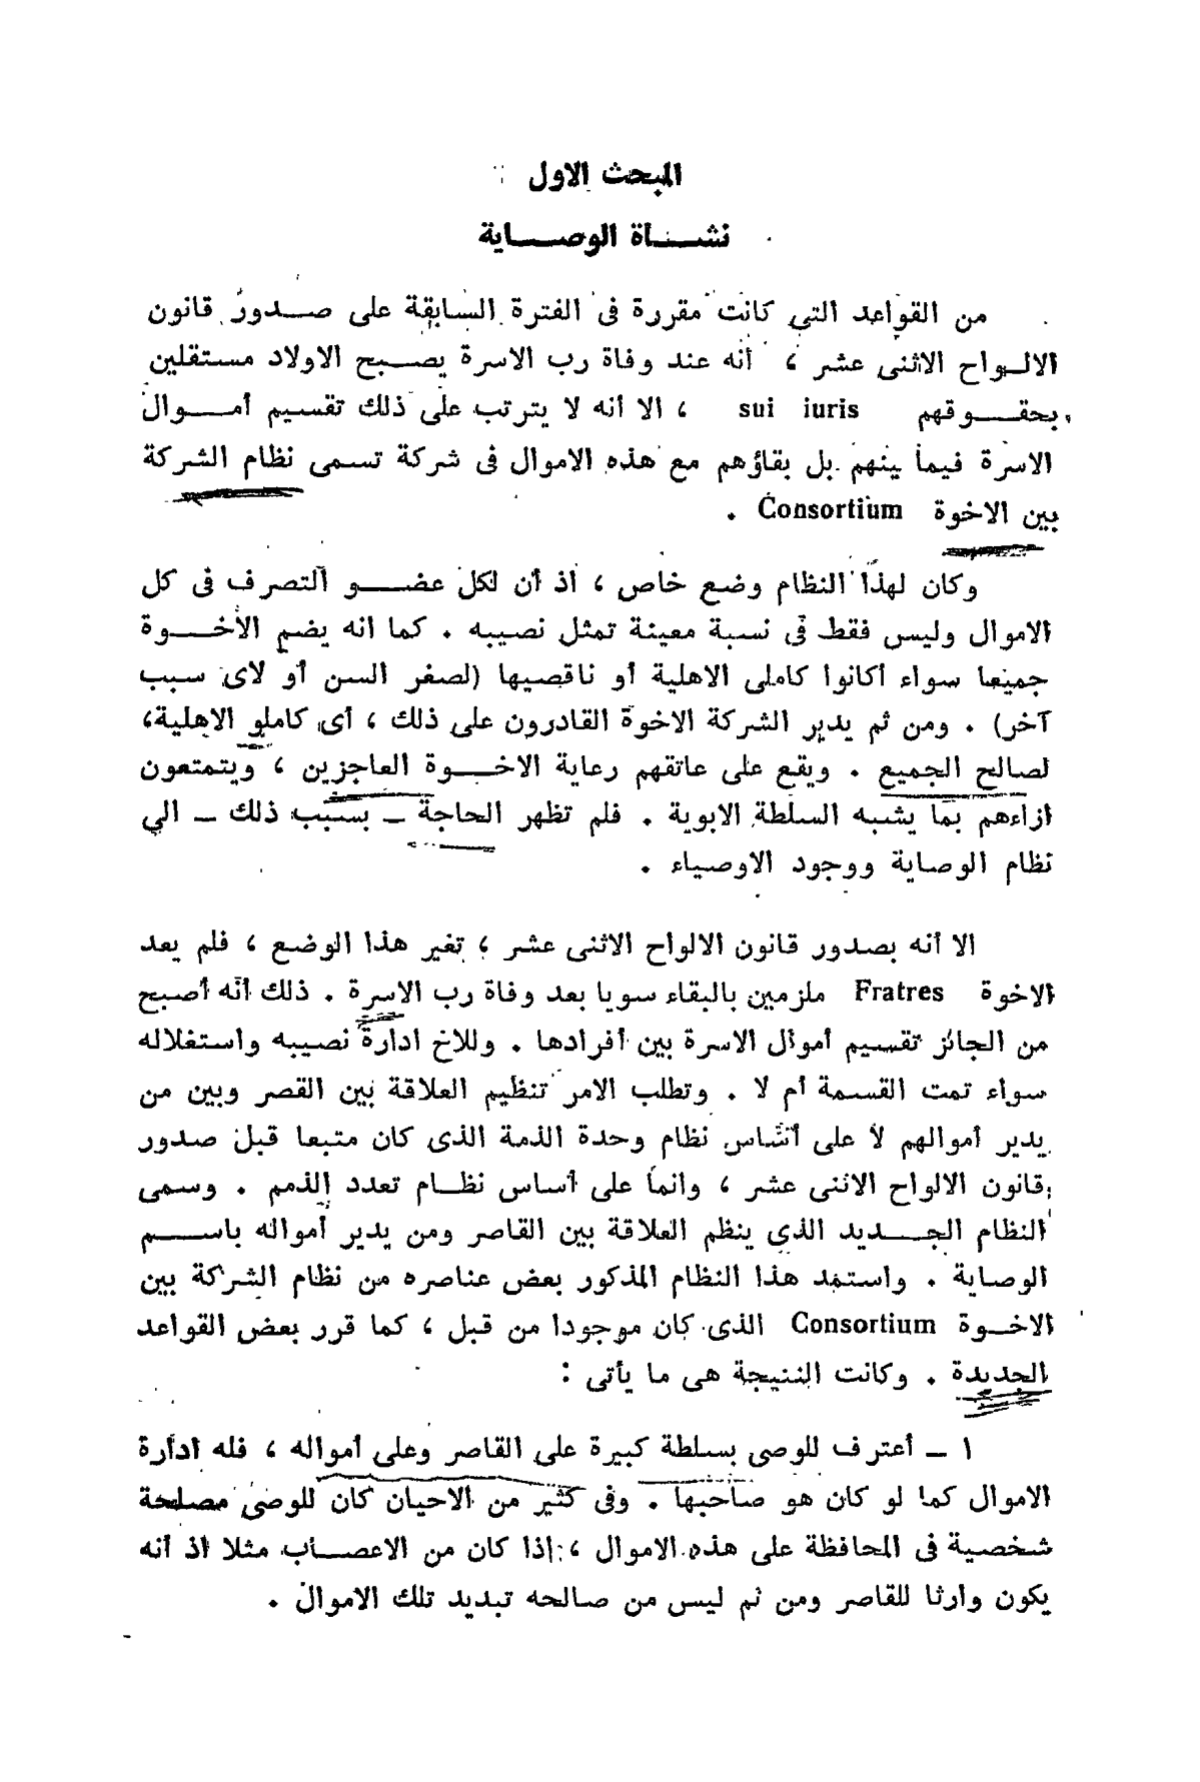 المبحث الاول
نشاة الوصاية
من القواعد التي كانت مقررة فى الفترة السابقة على صدور قانون
الالواح الاثنى عشر ، أنه عند وفاة رب الاسرة يصبح الاولاد مستقلين
بحقوقهم sui iuris ، الا أنه لا يترتب على ذلك تقسيم أموال
الاسرة فيما بينهم بل بقاؤهم مع هذه الاموال فى شركة تسمى نظام الشركة
بين الاخوة Consortium .
وكان لهذا النظام وضع خاص ، اذ أن لكل عضو التصرف فى كل
الاموال وليس فقط فى نسبة معينة تمثل نصيبه . كما انه يضم الأخوة
جميعا سواء أكانوا كاملى الاهلية أو ناقصيها (لصغر السن أو لاى سبب
آخر) . ومن ثم يدير الشركة الاخوة القادرون على ذلك ، أى كاملو الاهلية،
لصالح الجميع . ويقع على عاتقهم رعاية الاخوة العاجزين ، ويتمتعون
ازاءهم بما يشبه السلطة الابوية . فلم تظهر الحاجة – بسبب ذلك – الي
نظام الوصاية ووجود الاوصياء .
الا أنه بصدور قانون الالواح الاثنى عشر ، تغير هذا الوضع ، فلم يعد
الاخوة Fratres ملزمين بالبقاء سويا بعد وفاة رب الاسرة . ذلك أنه أصبح
من الجائز تقسيم أموال الاسرة بين أفرادها . وللاخ ادارة نصيبه واستغلاله
سواء تمت القسمة أم لا . وتطلب الامر تنظيم العلاقة بين القصر وبين من
يدير أموالهم لا على أساس نظام وحدة الذمة الذى كان متبعا قبل صدور
قانون الالواح الاثنى عشر ، وانما على أساس نظام تعدد الذمم . وسمى
النظام الجديد الذي ينظم العلاقة بين القاصر ومن يدير أمواله باسم
الوصاية . واستمد هذا النظام المذكور بعض عناصره من نظام الشركة بين
الاخوة Consortium الذى كان موجودا من قبل ، كما قرر بعض القواعد
الجديدة . وكانت النتيجة هى ما يأتى :
١ – أعترف للوصى بسلطة كبيرة على القاصر وعلى أمواله ، فله ادارة
الاموال كما لو كان هو صاحبها . وفى كثير من الاحيان كان للوصى مصلحة
شخصية فى المحافظة على هذه الاموال ، إذا كان من الاعصاب مثلا اذ أنه
يكون وارثا للقاصر ومن ثم ليس من صالحه تبديد تلك الاموال .